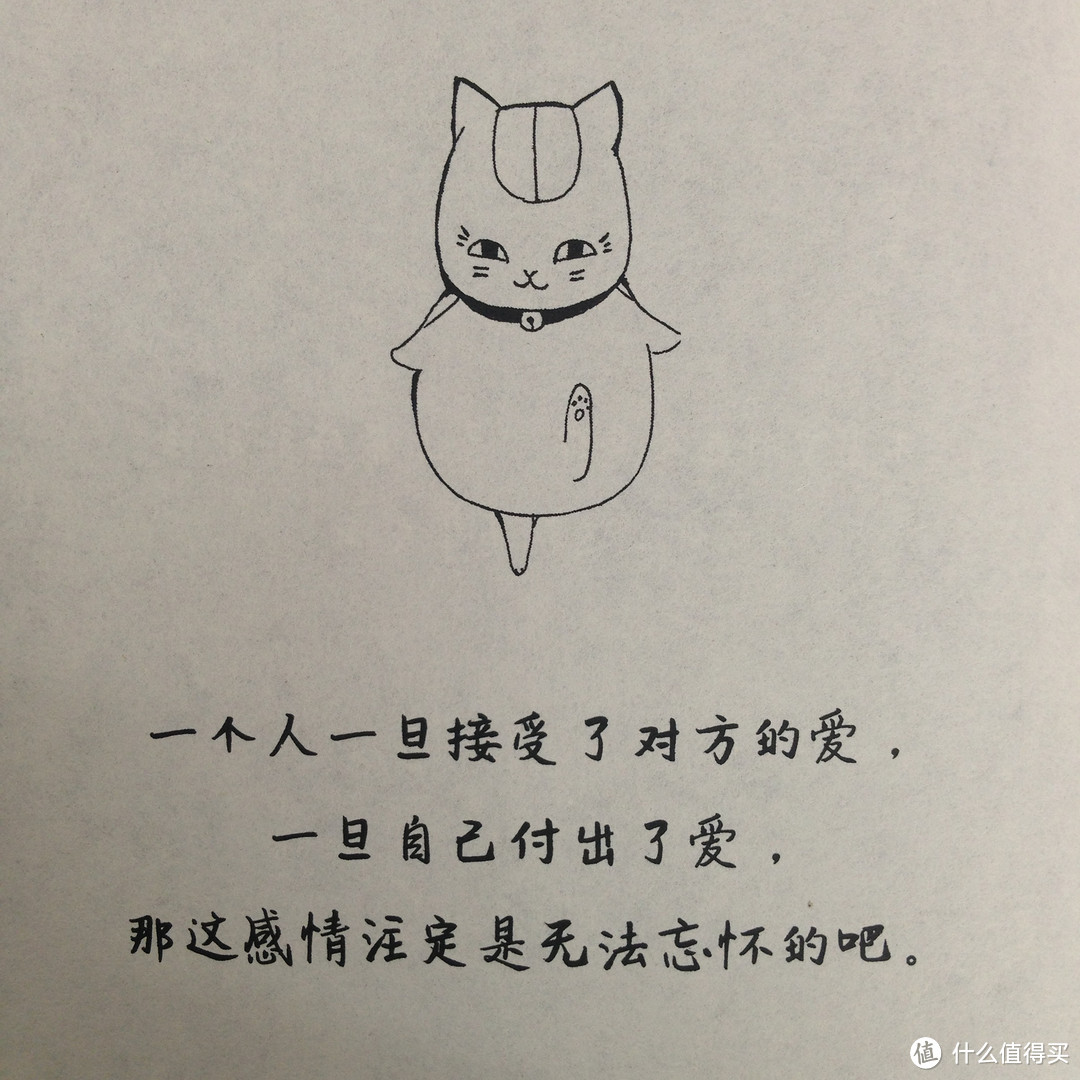 一个人一旦接受了对方的爱，
一旦自己付出了爱，
那这感情注定是无法忘怀的吧。
值 什么值得买